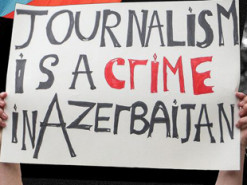 JOURNALiSM
iS A CRiME
iN AZERbAiJAN